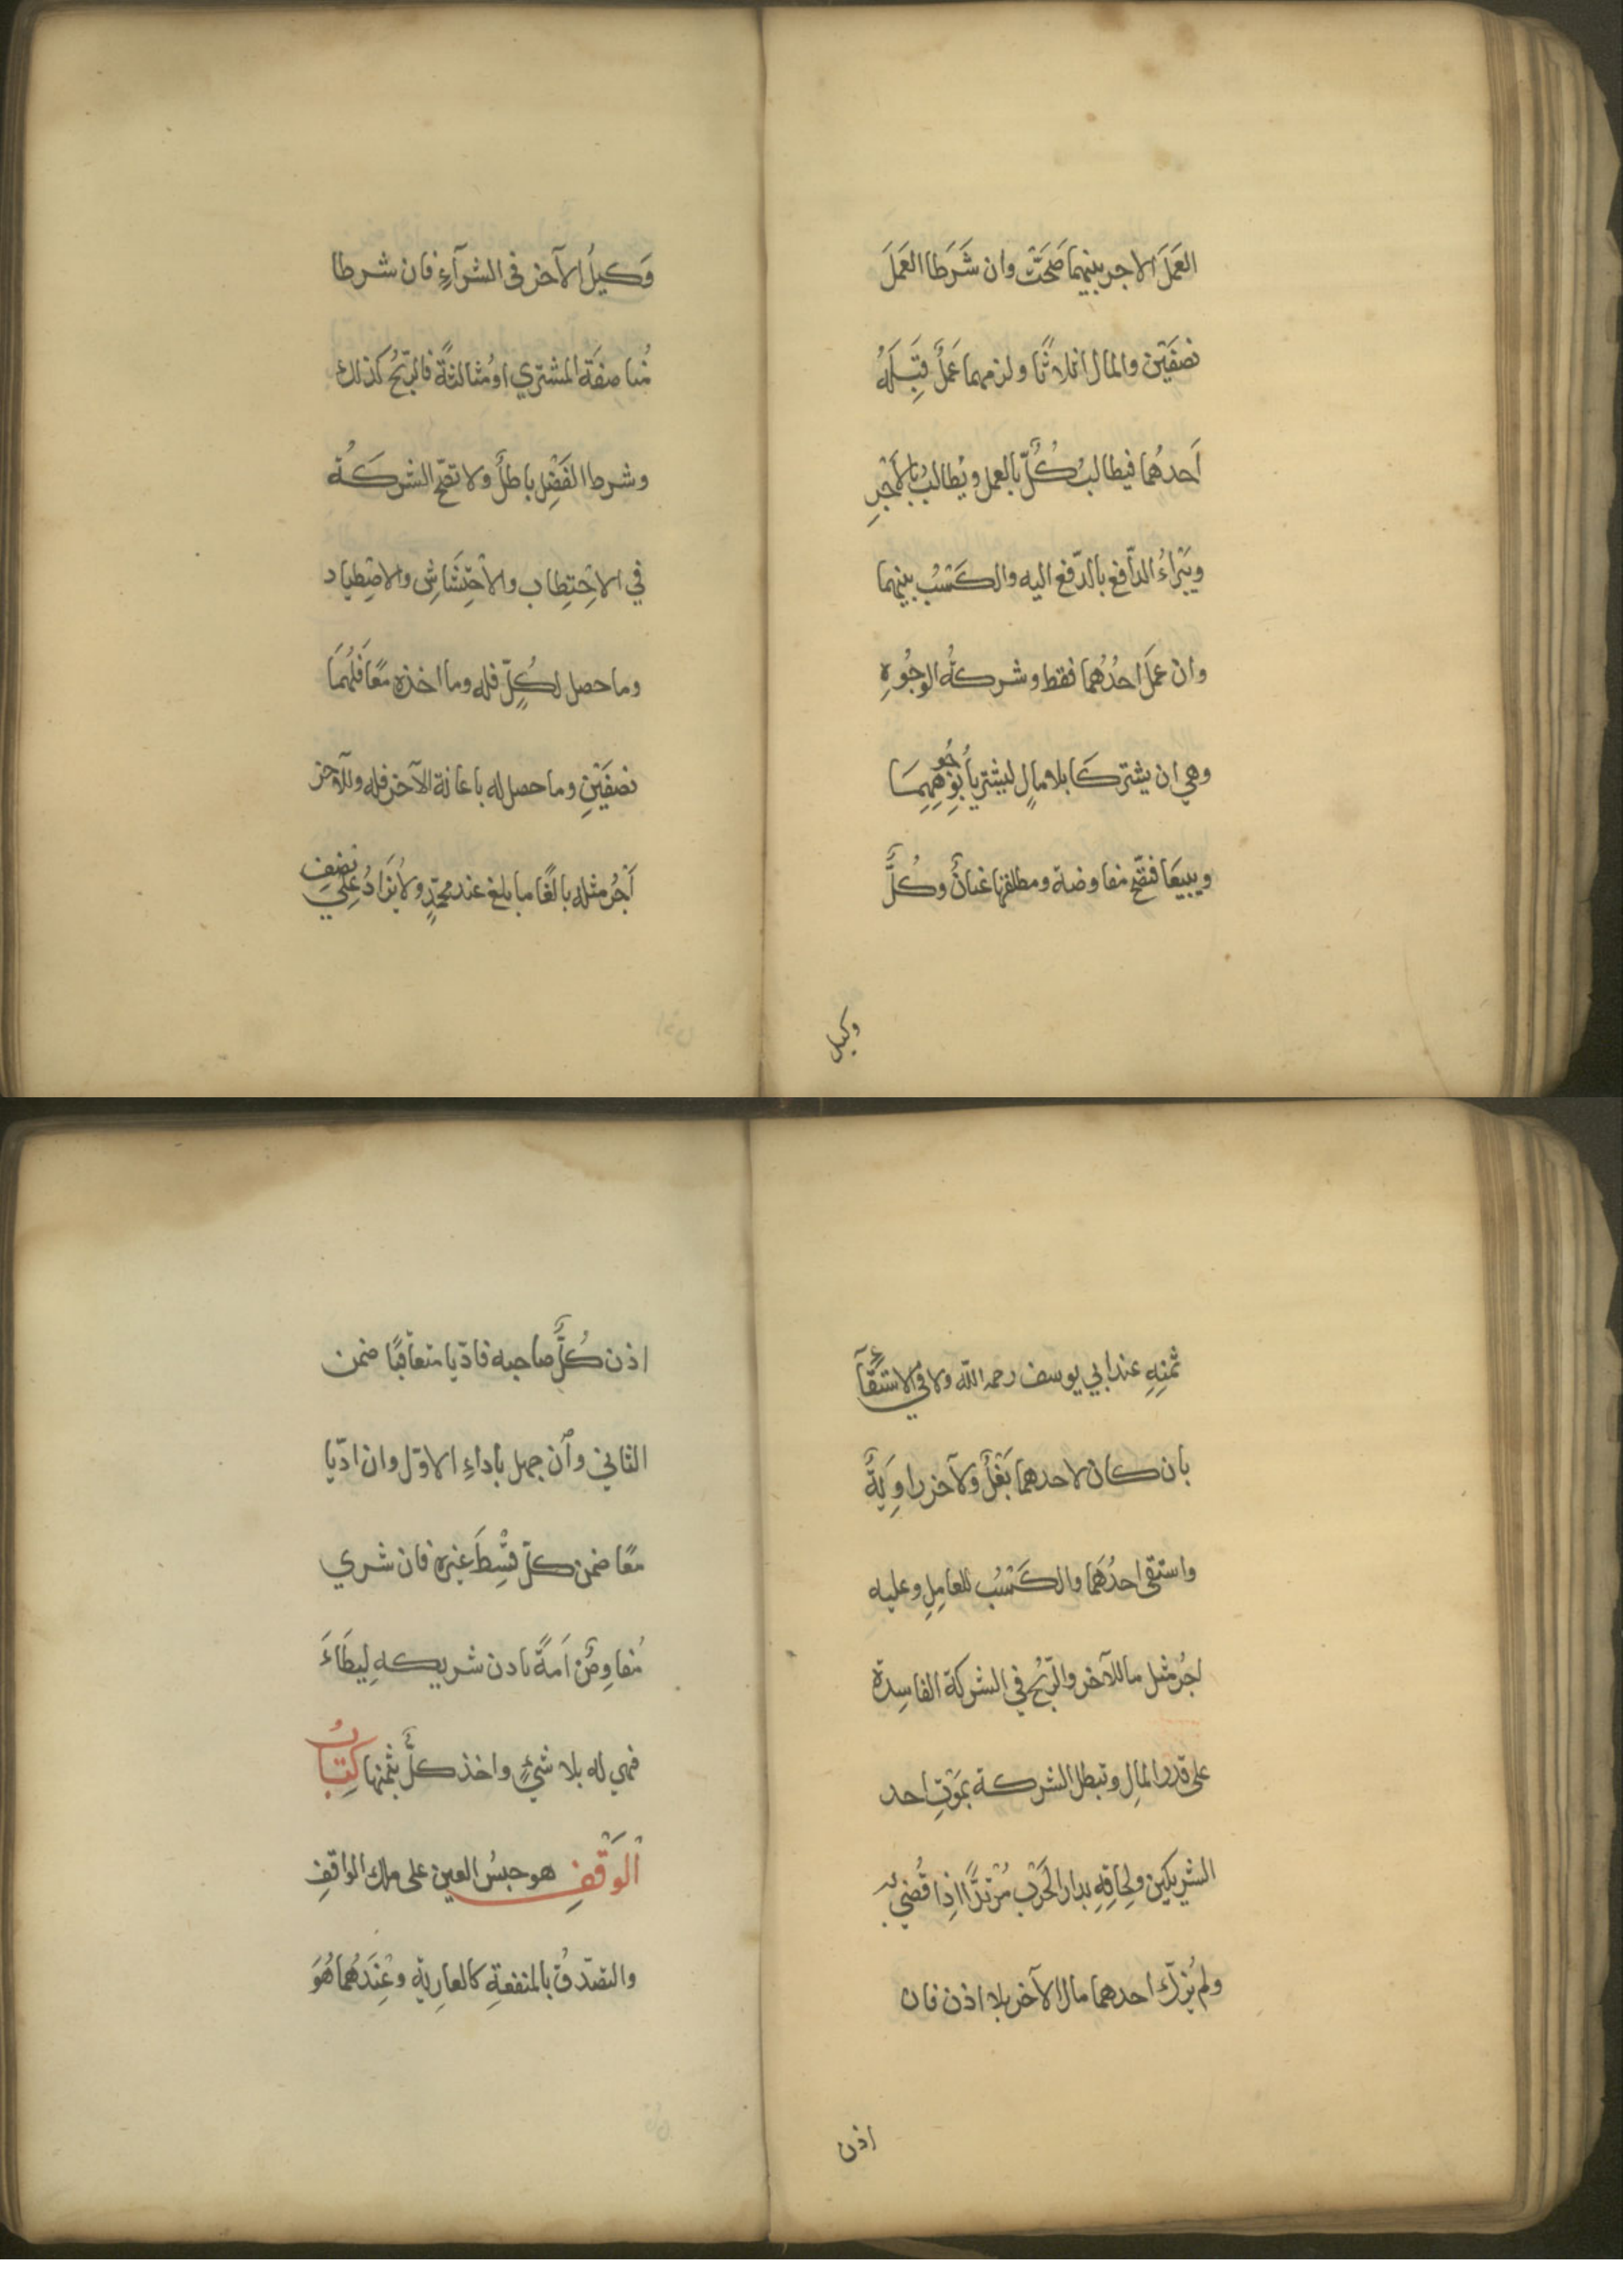 العَمَلَ الاجر بينهما صَحَّتْ وان شَرَطَا العَمَلَ
نصفَيْن والمال اثلاثًا ولزمهما عَمَلٌ قَبِلَهُ
اَحدهُما فيطالبُ كُلٌّ بالعمل ويُطالبُ بالاَجْرِ
ويَبْراءُ الدّافع بالدّفع اليه والكَسْبُ بينهما
وان عمَلَ احدُهُما فقط وشركةُ الوجُوهِ
وهي ان يشتركَا بلا مالٍ ليشتريا بِوُجُوهِهِمَا
ويبيعَا فتصّح مفاوضة ومطلقها عنانٌ وكُلٌّ
وكيل
وَكيلُ الآخر فى الشرآءِ فان شرطا
مُناصفَة المشتري اومُثالثةً فالرّبحُ كذلك
وشرط الفَضْل باطلٌ ولا تصّح الشركةُ
في الاحْتِطاب والاحْتِشَاشِ والاصْطِياد
وما حصل لكُلٍّ فله وما اخذه معًا فَلَهُمَا
نصفَيْنِ وما حصل له باعانة الآخر فله وللآخر
اَجْرُ مثله بالغًا ما بلغ عند محمّدٍ ولا يُزَادُ على نصف
ثمنِهِ عند ابي يوسف رحمه اللّه ولا في الاستقآءِ
بان كان لاحدهما بَغْلٌ ولآخر راوِيَةٌ
واستقى احدُهُما والكَسْبُ للعامِلِ وعليه
اجرُ مثل ما للآخر والرّبْحُ في الشركة الفاسِدة
على قدر المالِ وتبطل الشركة بمَوْتِ احد
الشريكين ولِحاقِهِ بدار الحَرْب مُرْتدًّا اذِا قُضِيَ به
ولم يُزكّ احدهما مال الآخر بلا اذن فان
اذن
اذن كُلٌّ صاحبه فادّيا متعاقبًا ضمن
الثاني وان جهل بأداءِ الاوّل وان ادّيا
معًا ضمن كلّ قِسْطَ غيره فان شرى
مُفاوِضٌ اَمَةً باذن شريكهِ لِيطَاءَ
فهي له بلا شئٍ واخذ كلٌّ بثمنها كِتَابُ
الْوَقْفِ هو حبسُ العين على ملك الواقفِ
والتصّدقُ بالمنفعةِ كالعارِيَّة وعِنْدَهُما هُوَ